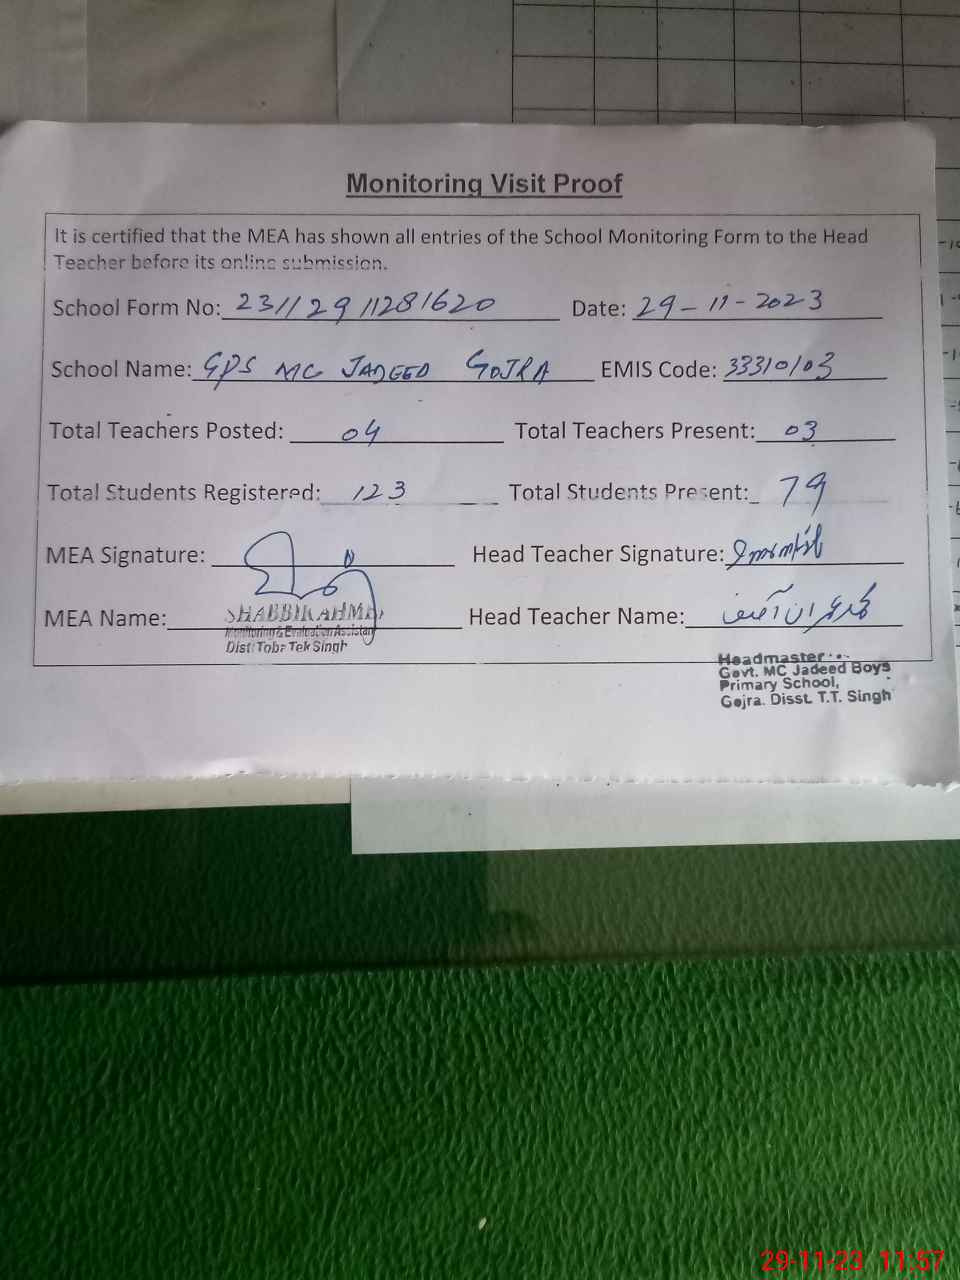 Monitoring Visit Proof
It is certified that the MEA has shown all entries of the School Monitoring Form to the Head
Teacher before its online submission.
School Form No: 231129 11281620 Date: 29-11-2023
School Name: GPS MC JADEED GOJRA EMIS Code: 33310103
Total Teachers Posted: 04 Total Teachers Present: 03
Total Students Registered: 123 Total Students Present: 79
MEA Signature: Head Teacher Signature:
MEA Name: SHABBIR AHMAD Head Teacher Name:
Monitoring & Evaluation Assistant
Distt Toba Tek Singh
Headmaster
Govt. MC Jadeed Boys
Primary School,
Gojra. Disst. T.T. Singh
29-11-23 11:57